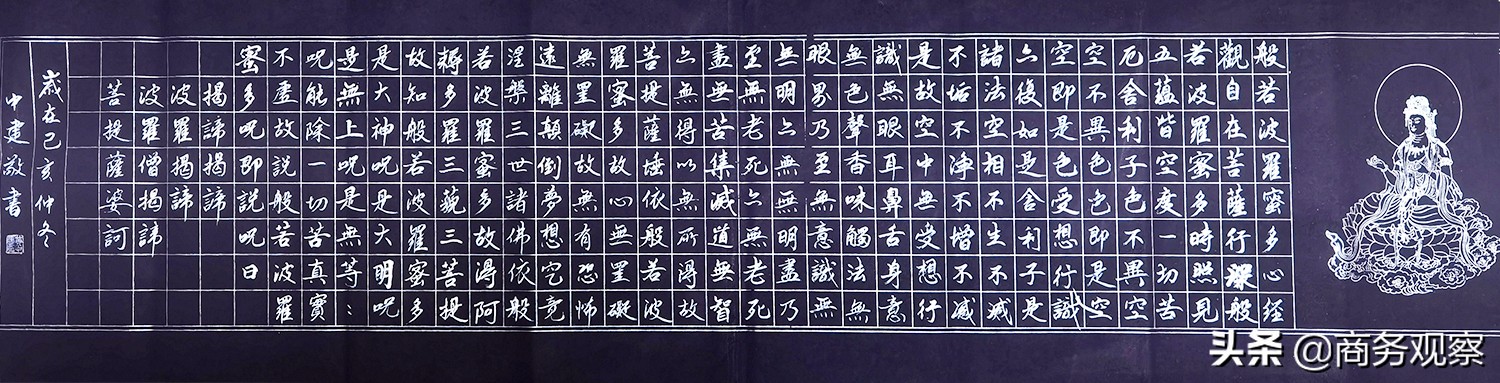 般若波羅蜜多心經
觀自在菩薩行深般
若波羅蜜多時照見
五蘊皆空度一切苦
厄舍利子色不異空
空不異色色即是空
空即是色受想行識
亦復如是舍利子是
諸法空相不生不滅
不垢不淨不增不減
是故空中無受想行
識無眼耳鼻舌身意
無色聲香味觸法無
眼界乃至無意識無
無明亦無無明盡乃
至無老死亦無老死
盡無苦集滅道無智
亦無得以無所得故
菩提薩埵依般若波
羅蜜多故心無罣礙
無罣礙故無有恐怖
遠離顛倒夢想究竟
涅槃三世諸佛依般
若波羅蜜多故得阿
耨多羅三藐三菩提
故知般若波羅蜜多
是大神呪是大明呪
是無上呪是無等:
呪能除一切苦真實
不虛故說般若波羅
蜜多呪即說呪曰
揭諦揭諦
波羅揭諦
波羅僧揭諦
菩提薩婆訶
歲在己亥仲冬
中建敬書
头条 @商务观察